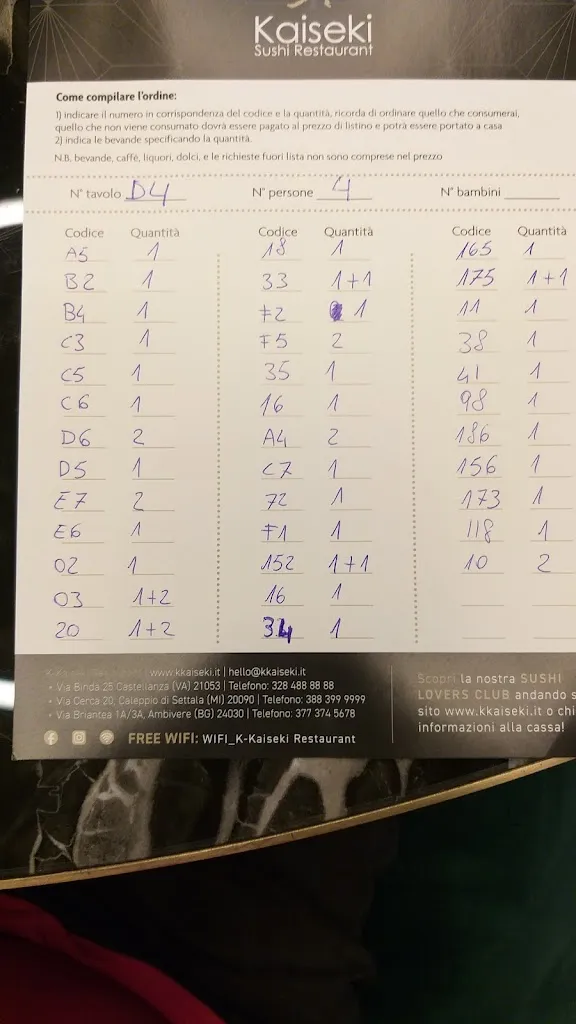 Kaiseki
Sushi Restaurant
Come compilare l'ordine:
1) indicare il numero in corrispondenza del codice e la quantità, ricorda di ordinare quello che consumerai,
quello che non viene consumato dovrà essere pagato al prezzo di listino e potrà essere portato a casa
2) indica le bevande specificando la quantità.
N.B. bevande, caffè, liquori, dolci, e le richieste fuori lista non sono comprese nel prezzo
N° tavolo D4 N° persone 4 N° bambini
Codice Quantità
A5 1
B2 1
B4 1
C3 1
C5 1
C6 1
D6 2
D5 1
E7 2
E6 1
02 1
03 1+2
20 1+2
Codice Quantità
18 1
33 1+1
F2 1
F5 2
35 1
16 1
A4 2
C7 1
72 1
F1 1
152 1+1
16 1
34 1
Codice Quantità
165 1
175 1+1
11 1
38 1
41 1
98 1
186 1
156 1
173 1
118 1
10 2
www.kkaiseki.it | hello@kkaiseki.it
• Via Binda 25 Castellanza (VA) 21053 | Telefono: 328 488 88 88
• Via Cerca 20, Caleppio di Settala (MI) 20090 | Telefono: 388 399 9999
• Via Briantea 1A/3A, Ambivere (BG) 24030 | Telefono: 377 374 5678
FREE WIFI: WIFI_K-Kaiseki Restaurant
Scopri la nostra SUSHI
LOVERS CLUB andando s
sito www.kkaiseki.it o chi
informazioni alla cassa!